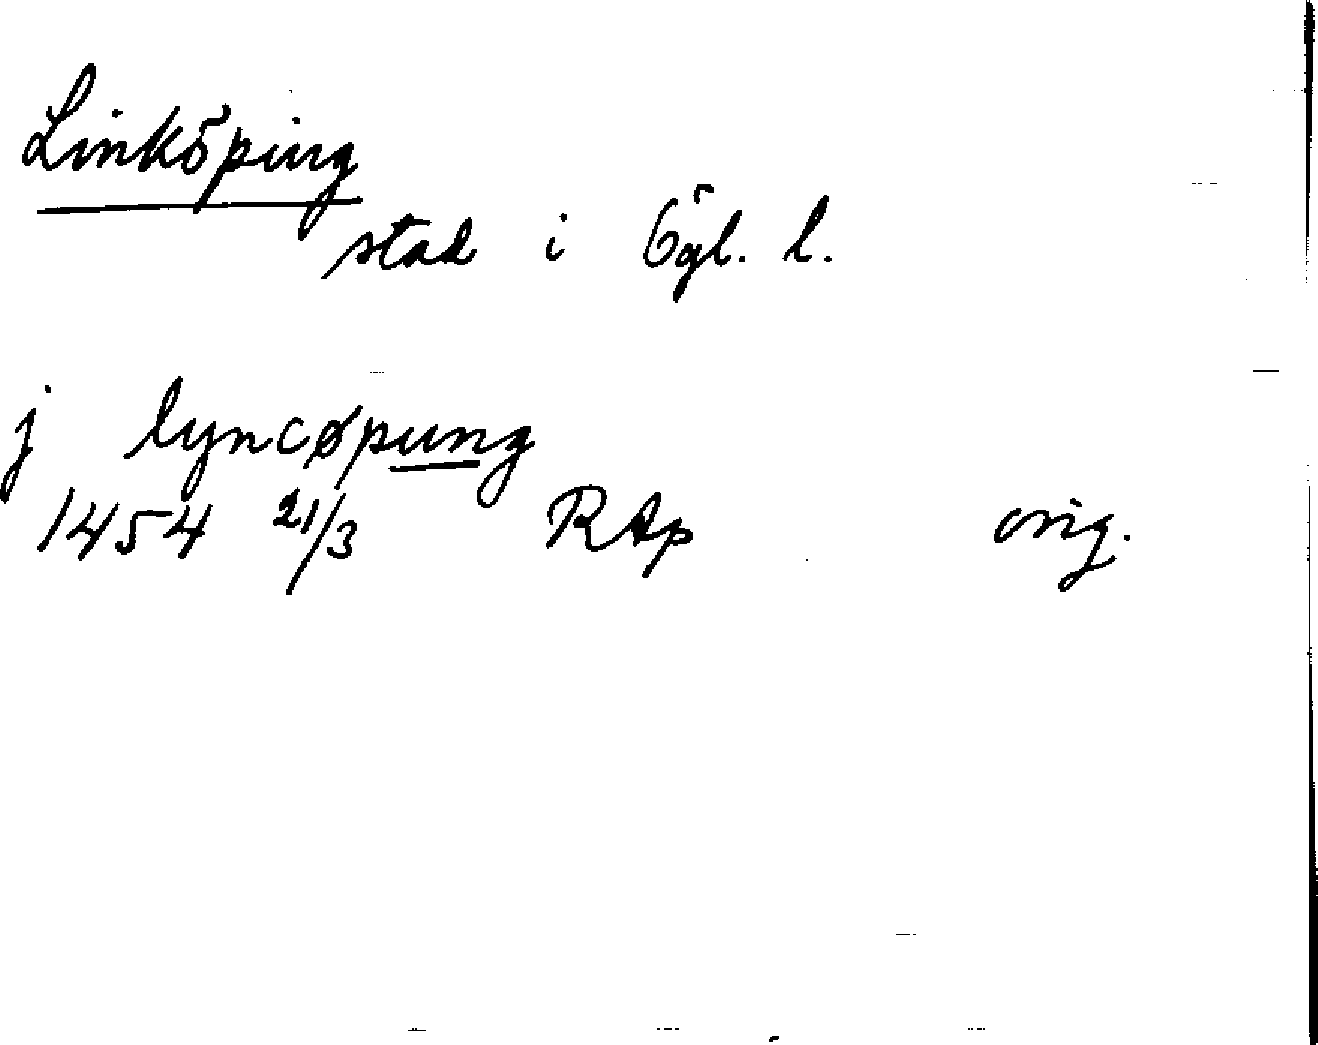 Linköping
stad i Ögl. l.
j lyncøpung
1454 21/3 RAp orig.